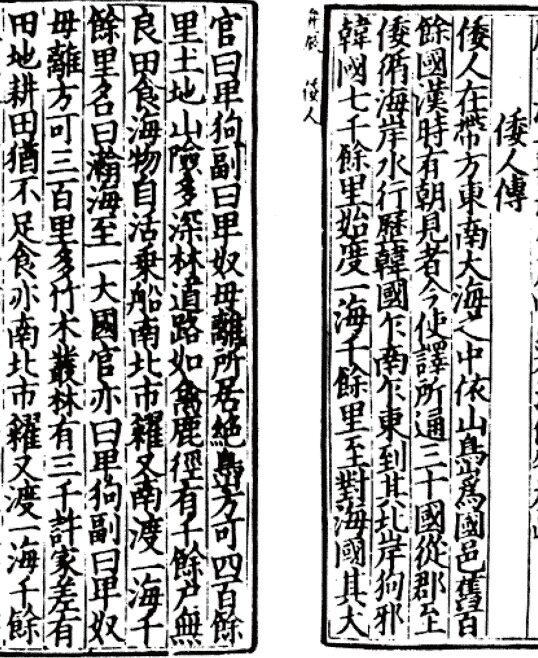 倭人傳
倭人在帶方東南大海之中依山㠀爲國邑舊百
餘國漢時有朝見者今使譯所通三十國從郡至
倭循海岸水行歷韓國乍南乍東到其北岸狗邪
韓國七千餘里始度一海千餘里至對海國其大
弁辰 倭人
官曰卑狗副曰卑奴毋離所居絶㠀方可四百餘
里土地山險多深林道路如禽鹿徑有千餘戸無
良田食海物自活乗船南北市糴又南渡一海千
餘里名曰瀚海至一大國官亦曰卑狗副曰卑奴
毋離方可三百里多竹木叢林有三千許家差有
田地耕田猶不足食亦南北市糴又渡一海千餘